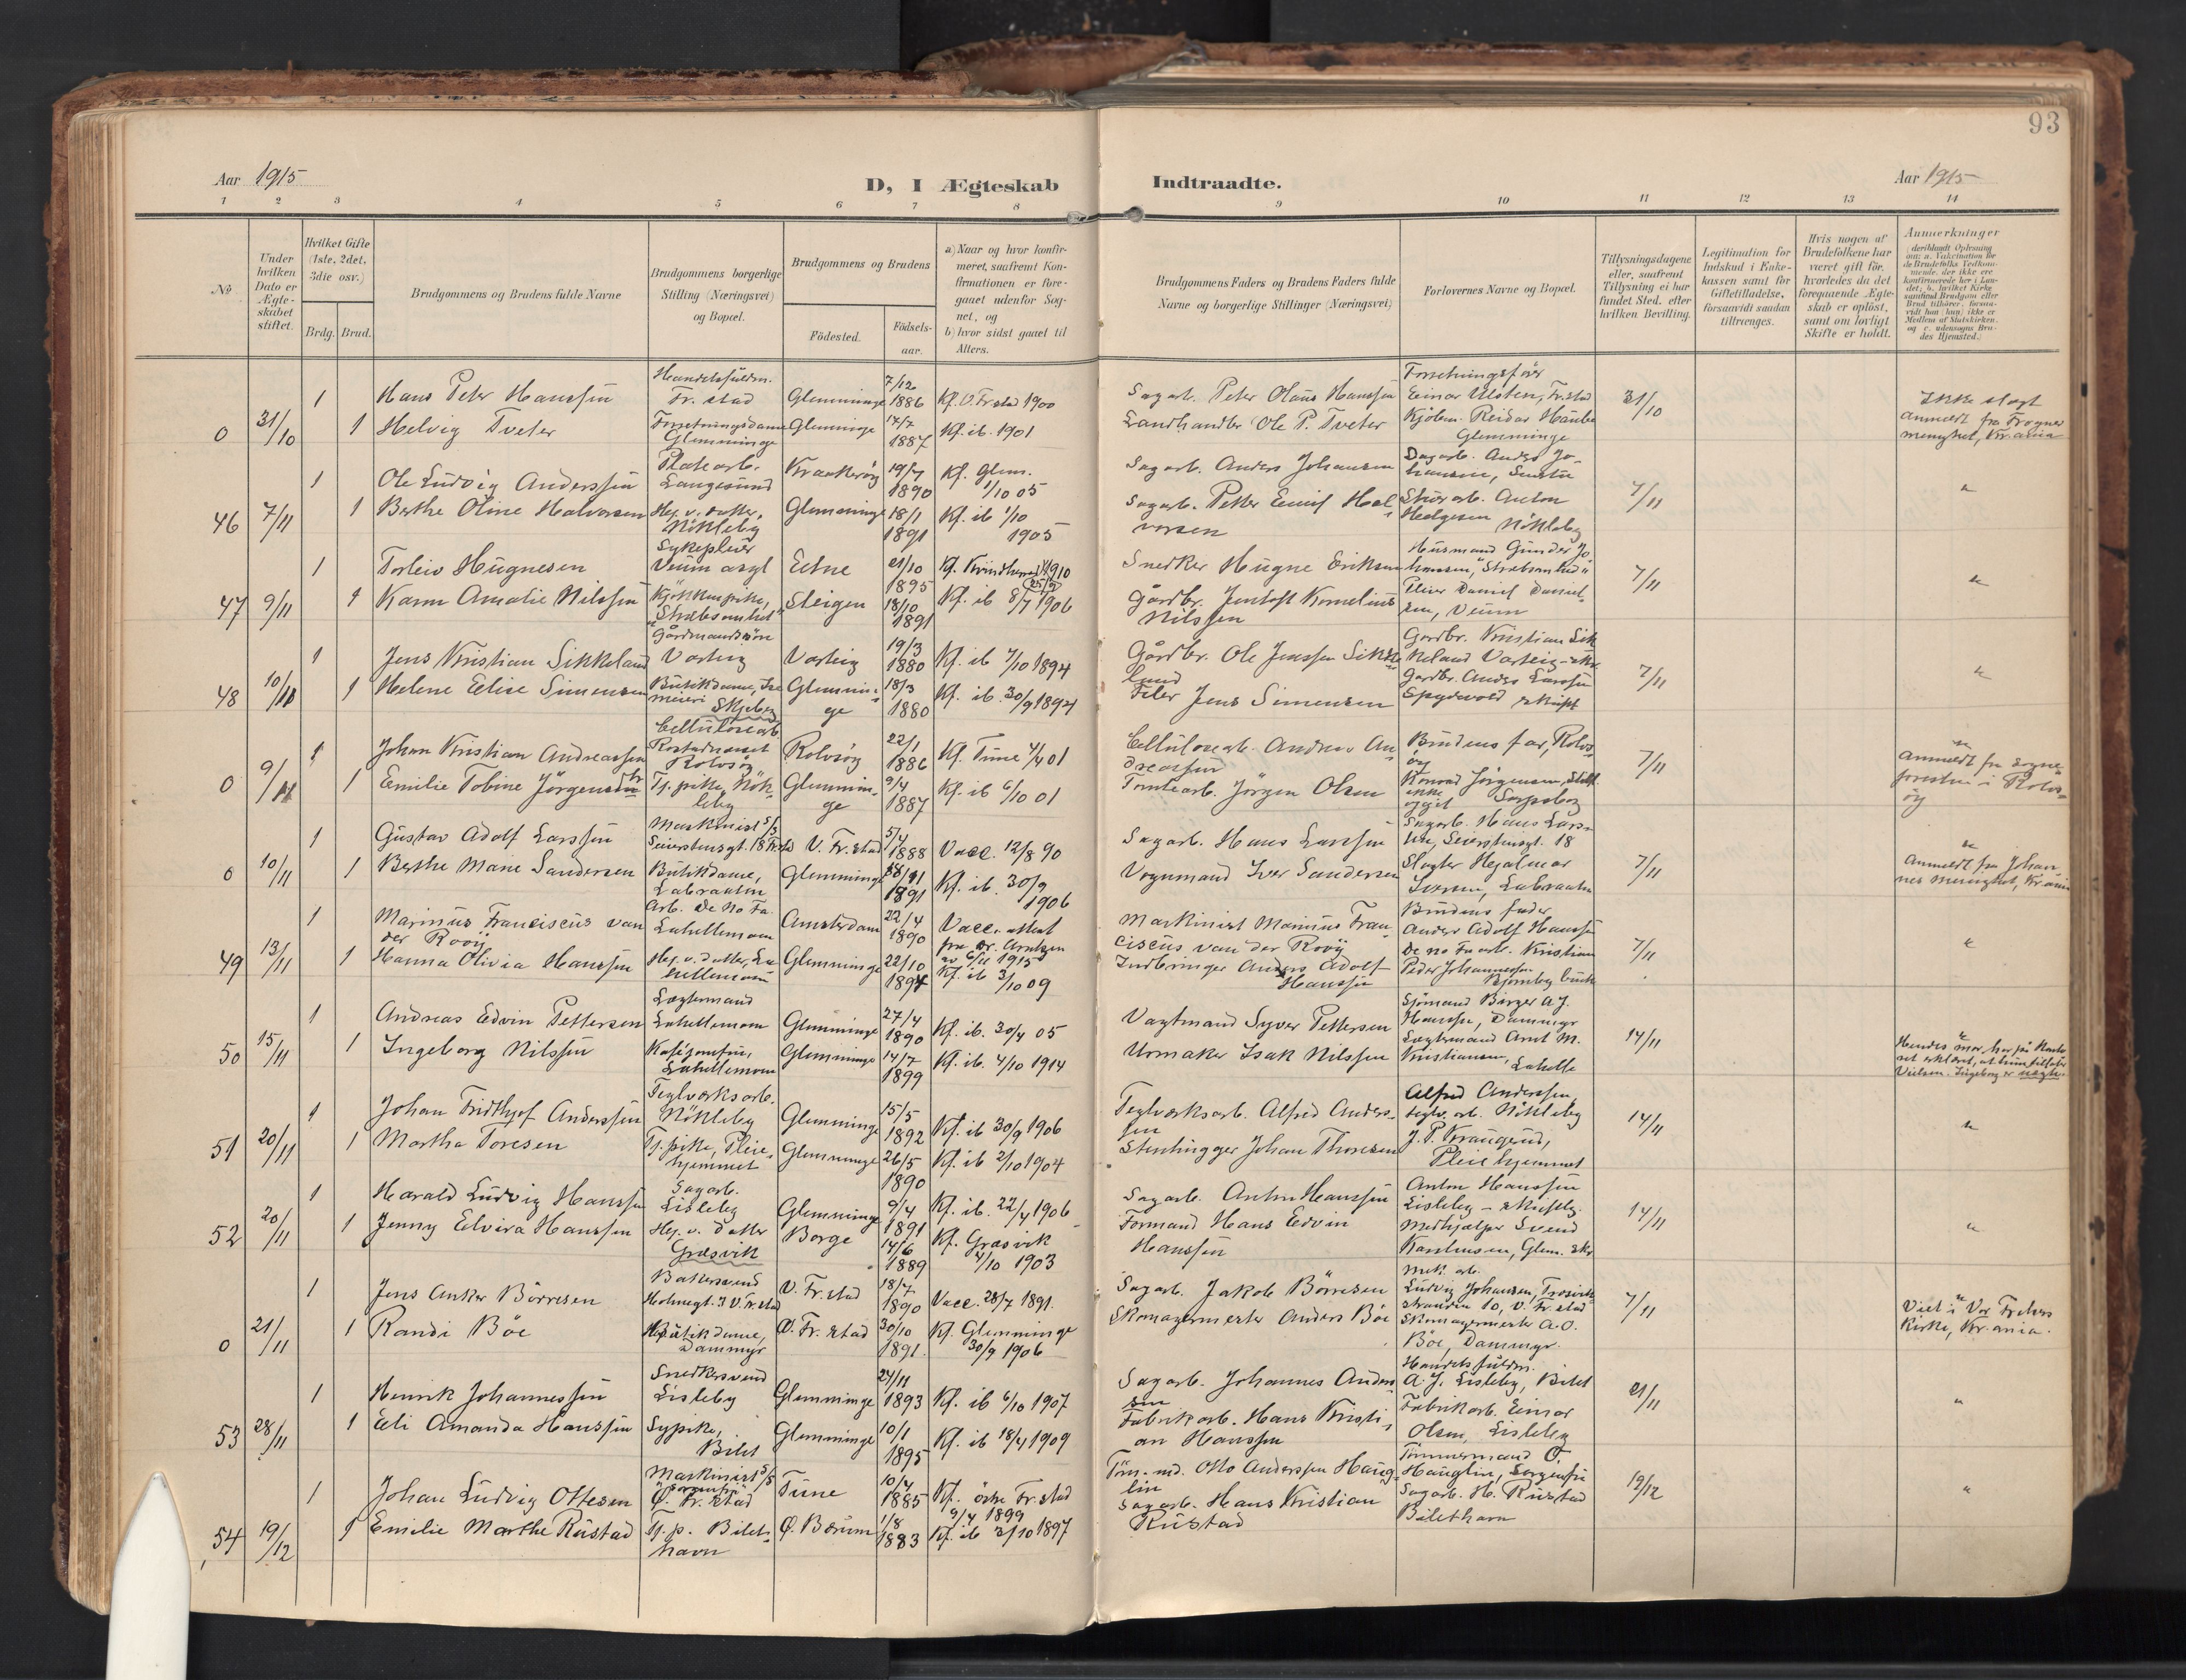 93
Aar 1915
D, I Ægteskab Indtraadte.
Aar 1915
1 2 3 4 5 6 7 8 9 10 11 12 13 14
No.
Under hvilken Dato er Ægteskabet stiftet.
Hvilket Gifte (1ste, 2det, 3die osv.)
Brdg. Brud.
Brudgommens og Brudens fulde Navne
Brudgommens borgerlige Stilling (Næringsvei) og Bopæl.
Brudgommens og Brudens
Födested.
Födsels-aar.
a) Naar og hvor konfirmeret, saafremt Konfirmationen er foregaaet udenfor Sognet, og
b) hvor sidst gaaet til Alters.
Brudgommens Faders og Brudens Faders fulde Navne og borgerlige Stillinger (Næringsvei)
Forlovernes Navne og Bopæl.
Tillysningsdagene eller, saafremt Tillysning ei har fundet Sted, efter hvilken Bevilling.
Legitimation for Indskud i Enkekassen samt for Giftetilladelse, forsaavidt saadan tiltrænges.
Hvis nogen af Brudefolkene har været gift för, hvorledes da det foregaaende Ægteskab er oplöst, samt om lovligt Skifte er holdt.
Anmerkninger
0 31/10
1 Hans Peter Hanssen Handelsfuldm. Fr. stad Glemminge 7/12 1886 Kf. O. Fr stad 1900 Sagarb. Peter Olaus Hanssen Forretningsförer Einar Ulsten, Fr. stad 31/10 Ikke slagt anmeldt fra Frogner menighet, Kr.ania
1 Helvig Tveter Forretningsdame Glemminge Glemminge 17/7 1887 Kf. ib. 1901 Landhandler Ole P. Tveter Kjöbm. Reidar Haube Glemminge
46 7/11
1 Ole Ludvig Anderssen Platearb. Langesund Kraakeröy 19/7 1890 Kf. Glem. 1/10 05 Sagarb. Anders Johansen Dagarb. Anders Johansen, 7/11 "
1 Berthe Oline Halvorsen Hej. v. datter, Nökleby Glemminge 18/1 1891 Kf. ib 1/10 1905 Sagarb. Petter Emil Halvorsen Anton Helgesen Nökleby
47 9/11
1 Torleiv Hugnesen Sykepleier Veum asyl Etne 21/10 1895 Kf. 1910 Snedker Hugne Eriksen Husmand Gunder Johansen, "Stræbsomhed" 7/11 "
1 Karen Amalie Nilssen Kjökkenpike, "Stræbsomhet" Steigen 18/10 1891 Kf. ib 8/7 1906 Gårdbr. Jentoft Kornelius Nilssen Pleier Daniel Danielsen, Veum
48 10/11
1 Jens Kristian Sikkeland Gårdmandssön Varteig Varteig 19/3 1880 Kf. ib 7/10 1894 Gårdbr. Ole Jenssen Sikkeland Gardbr. Kristian Sikkeland Varteig 7/11 "
1 Helene Elise Simensen Butikdame, Skjeberg Glemminge 18/3 1880 Kf. ib. 30/9 1894 Filer Jens Simensen Gardbr. Anders Larssen Spydevold
0 9/11
1 Johan Kristian Andreassen Cellulosearb. Rostadneset Rolvsöy Rolvsöy 22/1 1886 Kf. Tune 4/4 01 Cellulosearb. Andreas Andreassen Brudens far, Rolvsöy 7/11 " anmeldt fra sogneforstan i Rolvsöy
1 Emilie Tobine Jörgensdtr Tj. pike, Nökleby Glemminge 9/4 1887 Kf. ib 6/10 01 Tomtearb. Jörgen Olsen Konrad Jörgensen, Sarpsborg
0 10/11
1 Gustav Adolf Larssen Maskinist s/s Seierstensgt. 18 Fr.stad V. Fr. stad 5/4 1888 Vacc. 12/8 90 Sagarb. Hans Larssen Sagarb. Hans Larssen, Seierstensgt. 18 7/11 " Anmeldt fra Johannes menighet, Kr.ania
1 Berthe Marie Sandersen Butikdame, Labraaten Glemminge 1891 Kf. ib. 30/9 1906 Vognmand Iver Sandersen Slagter Hjalmar Iversen, Labraaten
49 13/11
1 Marinus Franciscus van der Rooij Arb. De No Fa. Lahellemoen Amsterdam 22/4 1890 Vacc. attest fra Dr. Arntzen av 6/11 1915 Maskinist Marinus Franciscus van der Rooij Brudens fader Anders Adolf Hanssen 7/11 "
1 Hanna Olivia Hanssen Hej. v. datter, Lahellemoen Glemminge 22/10 1894 Kf. ib 3/10 09 Indbringer Anders Adolf Hanssen De no Fa arb. Kristian Peder Johannessen
50 15/11
1 Andreas Edvin Pettersen Lægtermand Lahellemoen Glemminge 27/4 1890 Kf. ib. 30/4 05 Vagtmand Syver Pettersen Sjömand Birger A. J. Hanssen, Dammyr 14/11 "
1 Ingeborg Nilssen Lahellemoen Glemminge 14/7 1899 Kf. ib. 4/10 1914 Urmaker Isak Nilssen Lægtermand Arnt M. Kristiansen, Lahelle Hendes mor har på kontoret erklæret, at hun tillater Vielsen. Ingeborg er uegte.
51 20/11
1 Johan Fridthjof Anderssen Teglverksarb. Nökleby Glemminge 15/5 1892 Kf. ib 30/9 1906 Teglverksarb. Alfred Anderssen Alfred Anderssen, teglv. arb. Nökleby 14/11 "
1 Martha Toresen Tj. pike, Pleiehjemmet Glemminge 26/5 1890 Kf. ib 2/10 1904 Stenhugger Johan Thoresen J. P. Kraugerud, Pleiehjemmet
52 20/11
1 Harald Ludvig Hanssen Sagarb. Lisleby Glemminge 9/4 1891 Kf. ib. 22/4 1906 Sagarb. Anton Hanssen Anton Hanssen Lisleby 14/11 "
1 Jenny Elvira Hanssen Hej. v. datter Græsvik Borge 14/6 1889 Kf. Græsvik 4/10 1903 Formand Hans Edvin Hanssen Medhjælper Svend Karlhusen, Glem.
0 21/11
1 Jens Anker Börresen Bakersvend Holmegt. 3 V. Fr. stad V. Fr. stad 18/7 1890 Vacc. 28/7 1891. Sagarb. Jakob Börresen Mek. arb. Ludvig Johansen, Trosvikstranden 10, V. Fr. stad 7/11 " Viet i Vor Frelsers Kirke, Kr.ania.
1 Randi Böe Butikdame, Dammyr Ø. Fr. stad 30/10 1891. Kf. Glemminge 30/9 1906 Skomagermester Anders Böe Skomagermester A. O. Böe, Dammyr.
53 28/11
1 Henrik Johannessen Snedkersvend Lisleby Glemminge 24/11 1893 Kf. ib 6/10 1907 Sagarb. Johannes Andersen Handelsfuldm. A. J. Lisleby, Bilet 21/11 "
1 Eli Amanda Hanssen Sypike, Bilet Glemminge 10/1 1895 Kf. ib 18/4 1909 Fabrikarb. Hans Kristian Hanssen Fabrikarb. Einar Olsen, Lisleby
54 19/12
1 Johan Ludvig Ottesen Maskinist s/s Ø. Fr. stad Tune 10/4 1885 Kf. östre Fr. stad 9/4 1899 Töm. md. Otto Anderssen Hauglin Tömmermand O. Hauglin, Sorgenfri 12/12 "
1 Emilie Marthe Rustad Tj. p. Bilethavn Ø. Bærum 1/8 1883 Kf. ib 3/10 1897 Sagarb. Hans Kristian Rustad Sagarb. H. Rustad Bilethavn